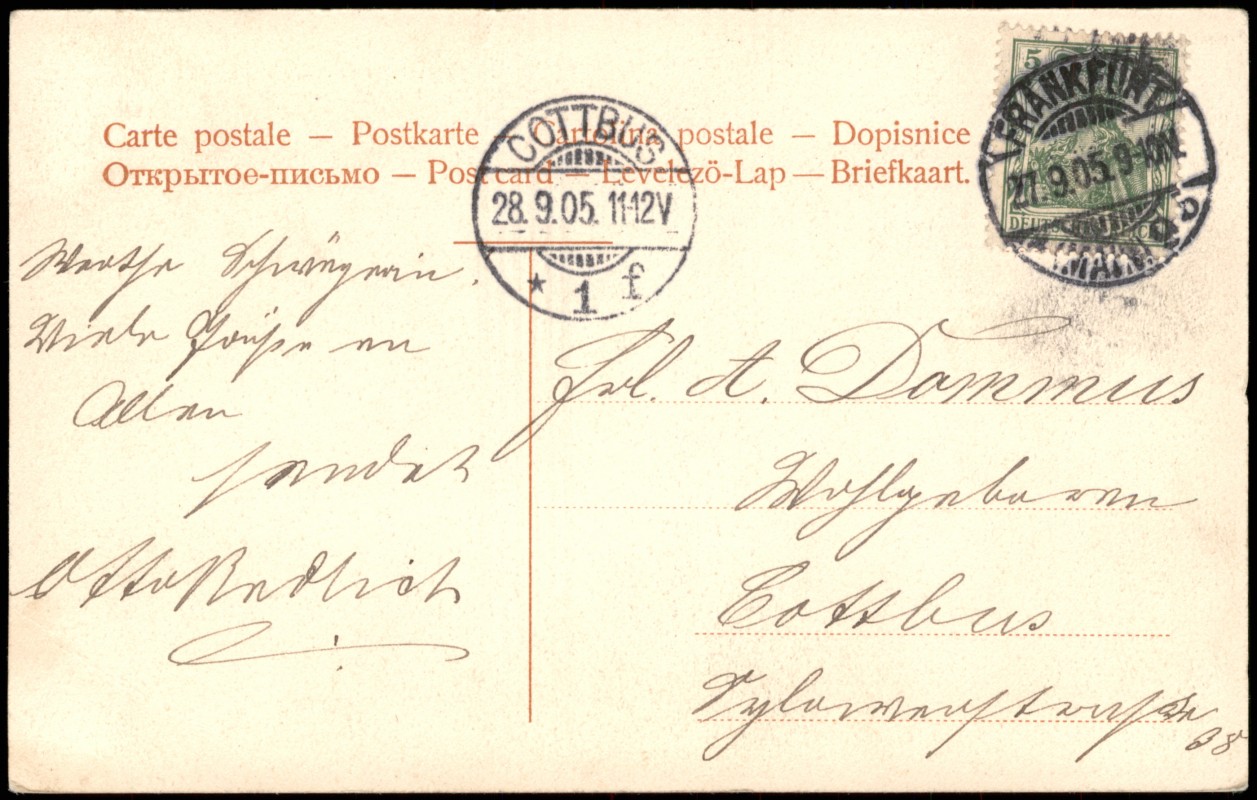 Carte postale – Postkarte – Cartolina postale – Dopisnice
Открытое-письмо – Post card – Levelezö-Lap – Briefkaart.
COTTBUS
28.9.05. 11-12V
* 1 f
5
DEUTSCHES REICH
FRANKFURT
27.9.05. 9-10N.
(MAIN)
Werthe Schwägerin.
Viele Grüße an
Allen
sendet
Otto Redlich
Frl. A. Dommus
Wohlgeboren
Cottbus
Sylowerstraße
38